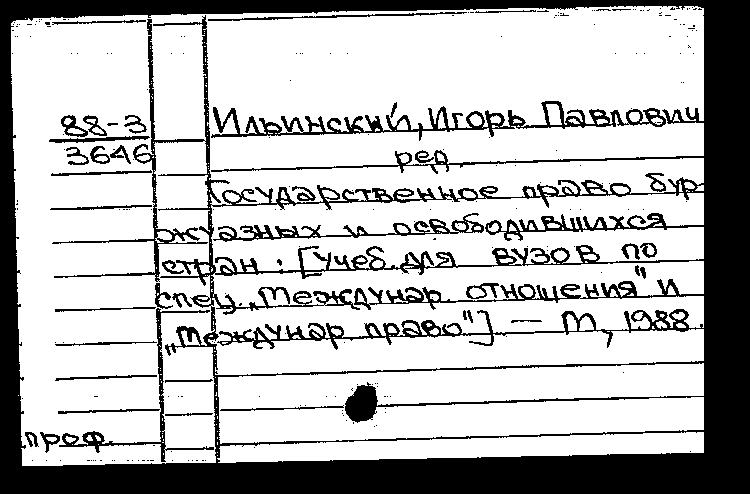 88-3
3646
Ильинский, Игорь Павлович
ред.
Государственное право бур-
жуазных и освободившихся
стран : [Учеб. для вузов по
спец. „Междунар. отношения" и
„Междунар. право"] — М, 1988.
проф.